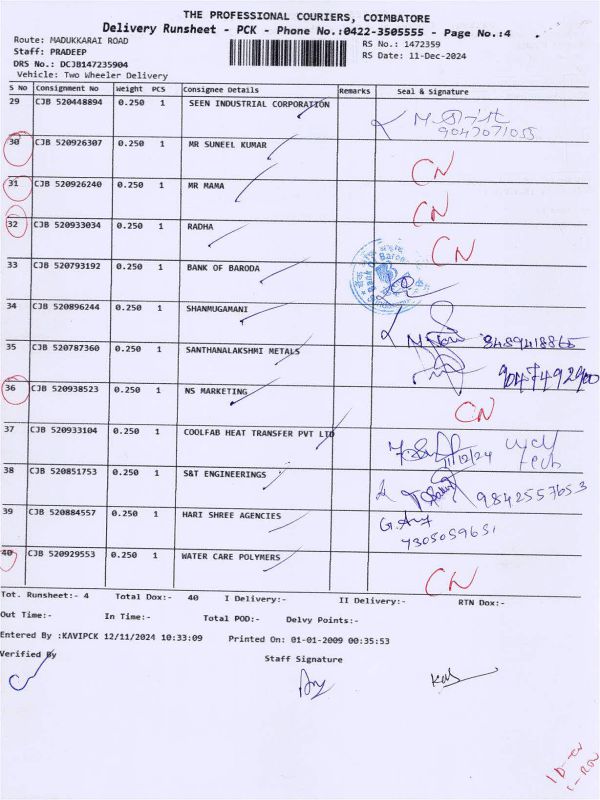 THE PROFESSIONAL COURIERS, COIMBATORE
Delivery Runsheet - PCK - Phone No.:0422-3505555 - Page No.:4
Route: MADUKKARAI ROAD
RS No.: 1472359
Staff: PRADEEP
RS Date: 11-Dec-2024
DRS No.: DCJB147235904
Vehicle: Two Wheeler Delivery
S No Consignment No Weight PCS Consignee Details Remarks Seal & Signature
29 CJB 520448894 0.250 1 SEEN INDUSTRIAL CORPORATION
9047071055
30 CJB 520926307 0.250 1 MR SUNEEL KUMAR CN
31 CJB 520926240 0.250 1 MR MAMA CN
32 CJB 520933034 0.250 1 RADHA CN
33 CJB 520793192 0.250 1 BANK OF BARODA
34 CJB 520896244 0.250 1 SHANMUGAMANI
8489418865
35 CJB 520787360 0.250 1 SANTHANALAKSHMI METALS
9047492900
36 CJB 520938523 0.250 1 NS MARKETING CN
37 CJB 520933104 0.250 1 COOLFAB HEAT TRANSFER PVT LTD
11/12/24 tech
38 CJB 520851753 0.250 1 S&T ENGINEERINGS
9842557653
39 CJB 520884557 0.250 1 HARI SHREE AGENCIES
7305059651
40 CJB 520929553 0.250 1 WATER CARE POLYMERS CN
Tot. Runsheet:- 4 Total Dox:- 40 I Delivery:- II Delivery:- RTN Dox:-
Out Time:- In Time:- Total POD:- Delvy Points:-
Entered By :KAVIPCK 12/11/2024 10:33:09 Printed On: 01-01-2009 00:35:53
Verified By Staff Signature